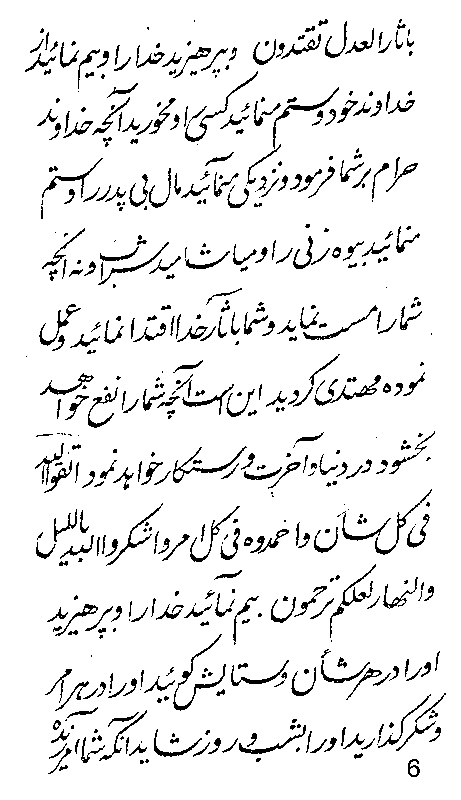 باثار العدل تقتدون وبپرهیزید خدا را و بیم نمائید از
خداوند خود و ستم منمائید کسی را و مخورید آنچه خداوند
حرام بر شما فرمود و نزدیکی منمائید مال بی پدر را و ستم
منمائید بیوه زنی را و میاشامید شراب و نه آنچه
شما را مست نماید و شما باثار خدا اقتدا نمائید و عمل
نموده مهتدی گردید این است آنچه شما را نفع خواهد
بخشود در دنیا و آخرت و رستکار خواهد نمود اتقوا الله
فی کل شأن و احمدوه فی کل امر و اشکروا الله باللیل
والنهار لعلکم ترحمون بیم نمائید خدا را و بپرهیزید
او را در هر شأن و ستایش کوئید او را در هر امر
و شکر گذارید او را بشب و روز شاید آنکه شما آمرزیده
6